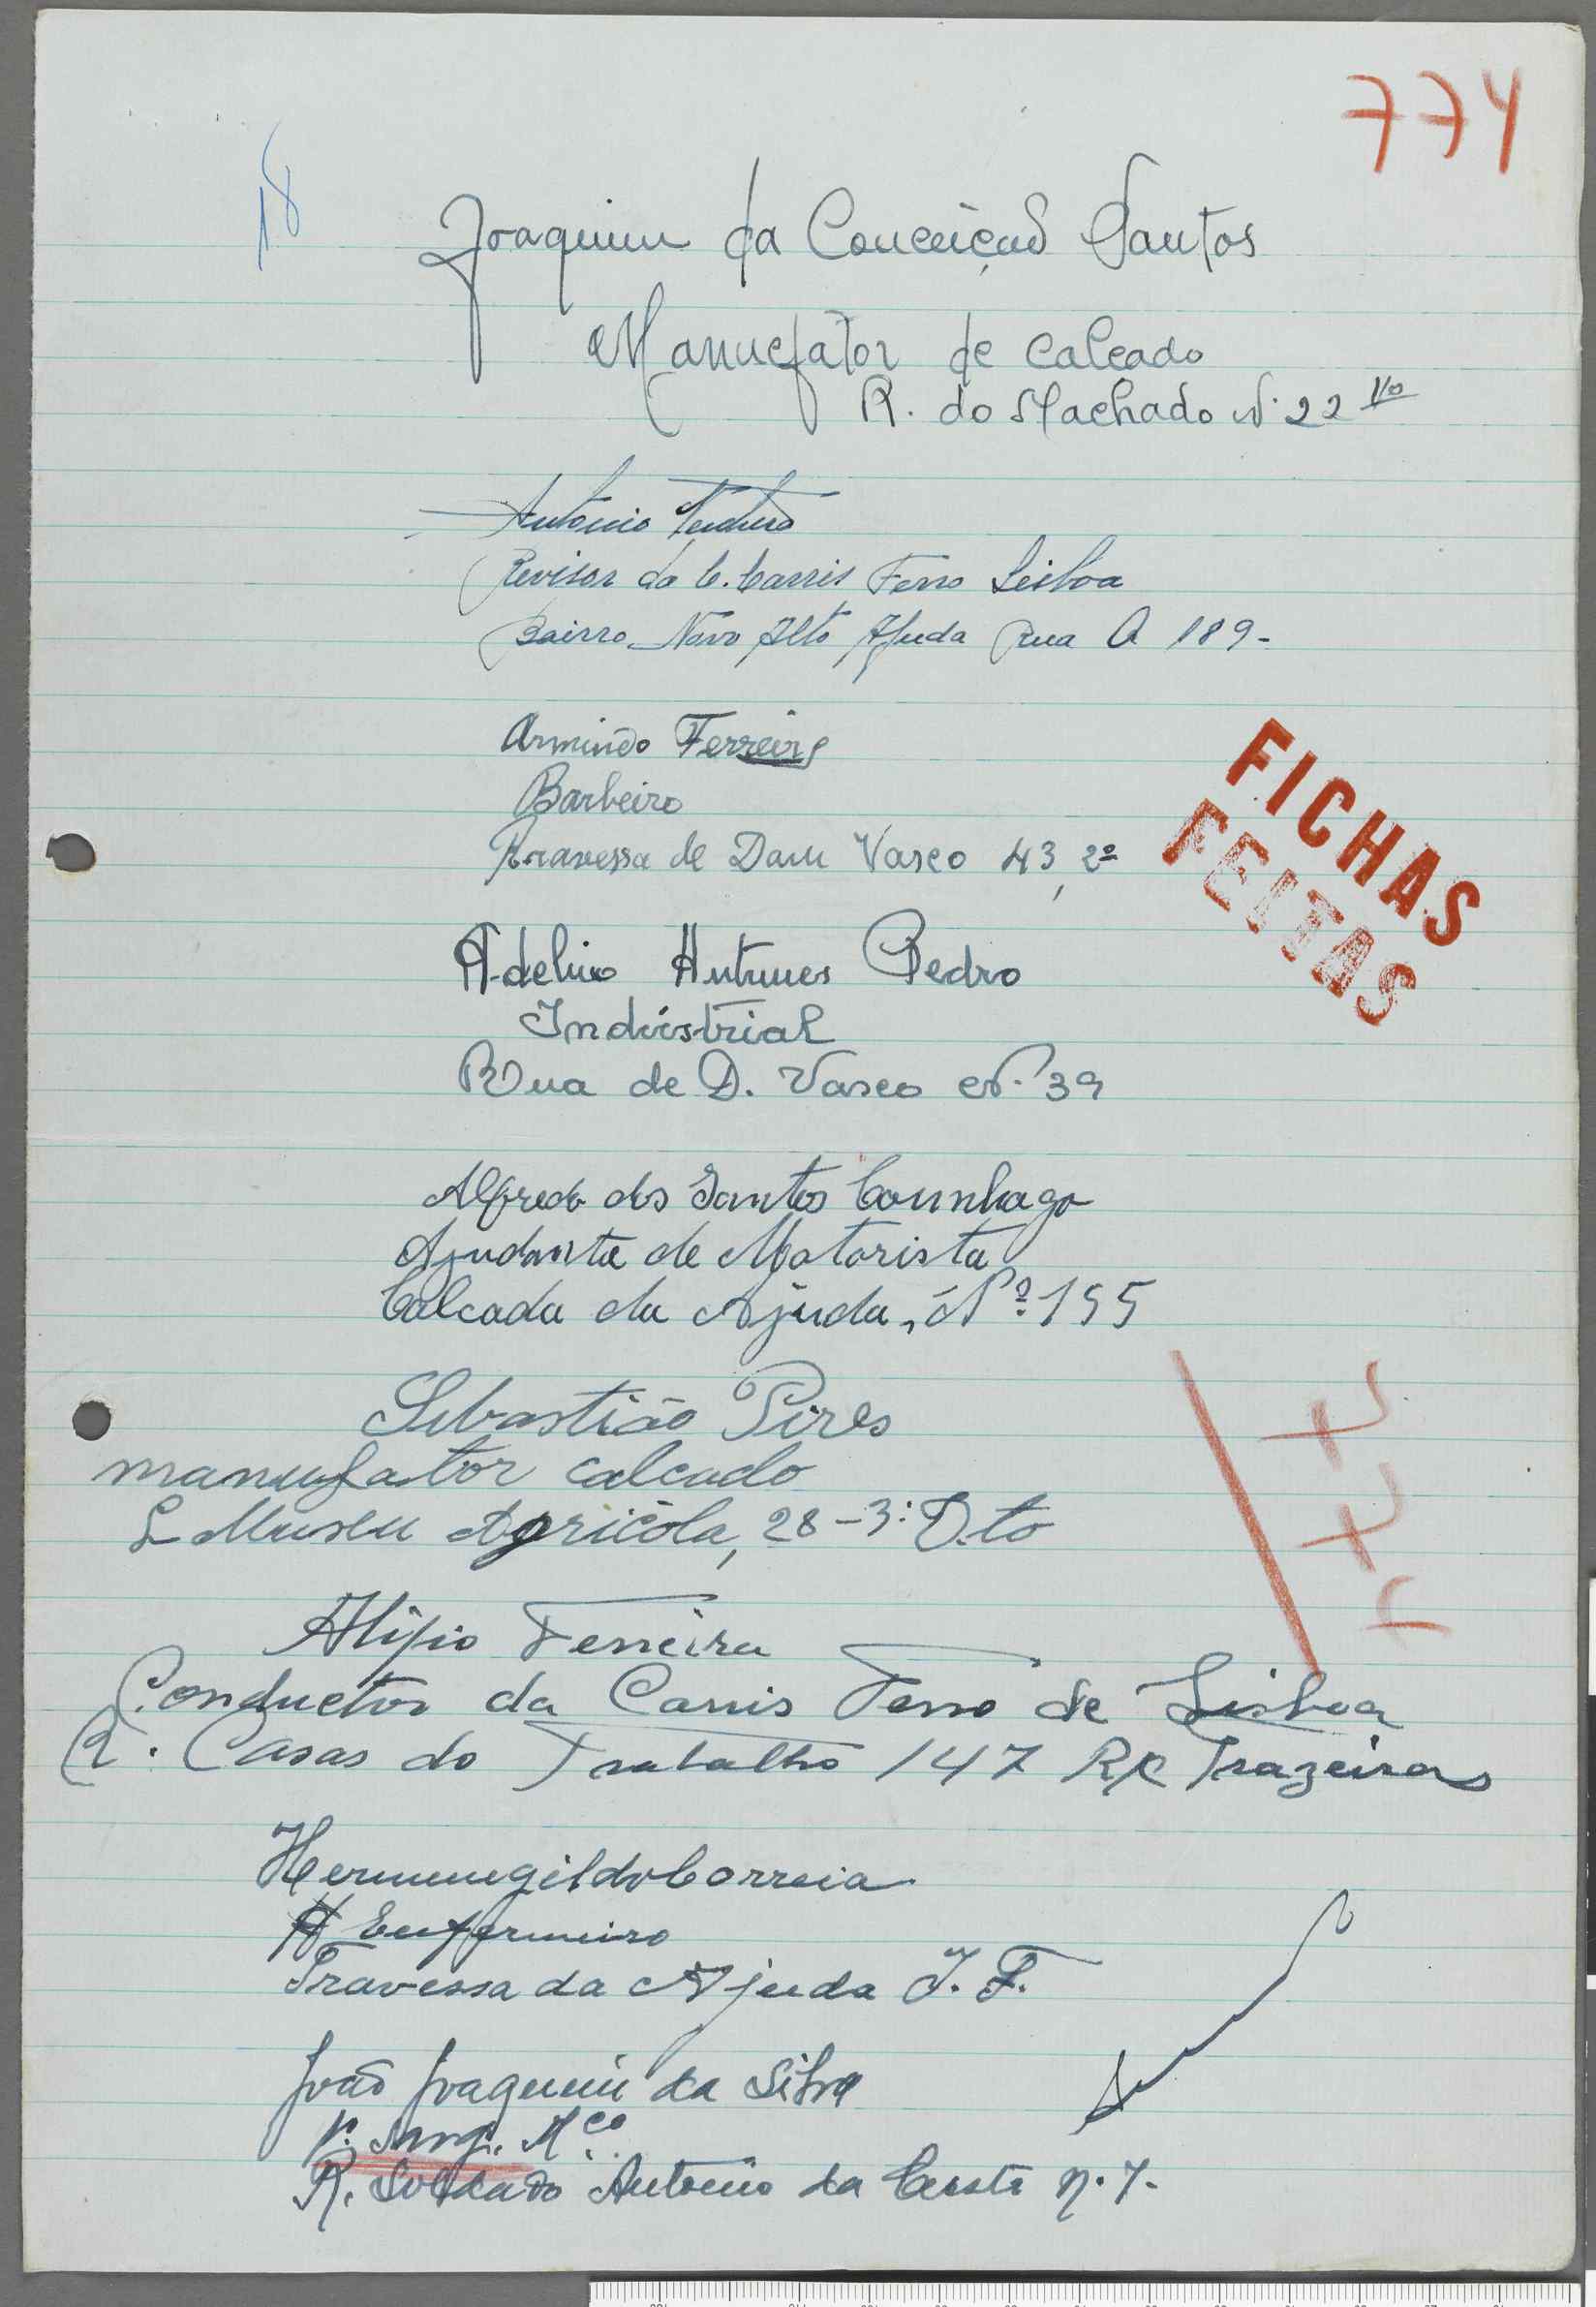 774
18
Joaquim da Conceição Santos
Manuefator de calcado
R. do Machado N. 22
Antonio
Revisor da C. Carris Ferro Lisboa
Bairro Novo Alto Ajuda Rua A 189-
Armindo Ferreira
Barbeiro
Travessa de Dom Vasco 43, 2º
FICHAS
FEITAS
Adelino Antunes Pedro
Indústrial
Rua de D. Vasco N. 39
Alfredo dos Santos
Ajudante de Motorista
Calcada da Ajuda, Nº 195
Sebastião Pires
manufator calcado
L Museu Agricóla, 28-3: D.to
Alipio Ferreira
Conductor da Carris Ferro de Lisboa
R. Casas do Trabalho 147 R/C Trazeiras
Hermenegildo Correia
Enfermeiro
Travessa da Ajuda J. F.
João Joaquim da Silva
R. Soldado Antonio da Costa n. 7-